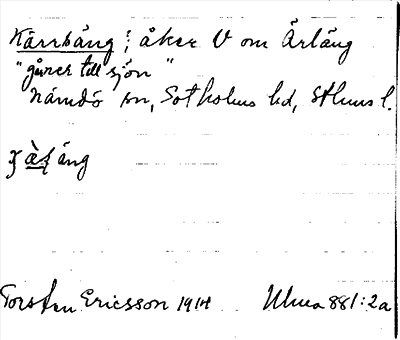 Kärrsäng; åker V om Ärläng
"gåner till sjön"
Nämdö sn, Sotholms hd, Sthlms l.
äng
Torsten Ericsson 1914 Ulma 881:2a